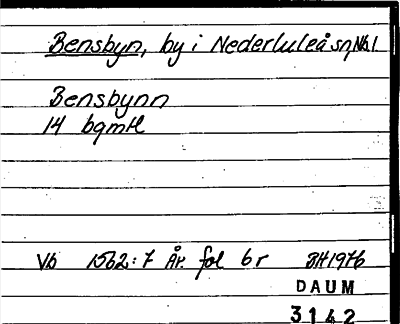 Bensbyn, by i Nederluleå sn, Nb l
Bensbynn
14 bgmtl
Vb 1562:7 År. fol 6 r BH 1976
DAUM
3142